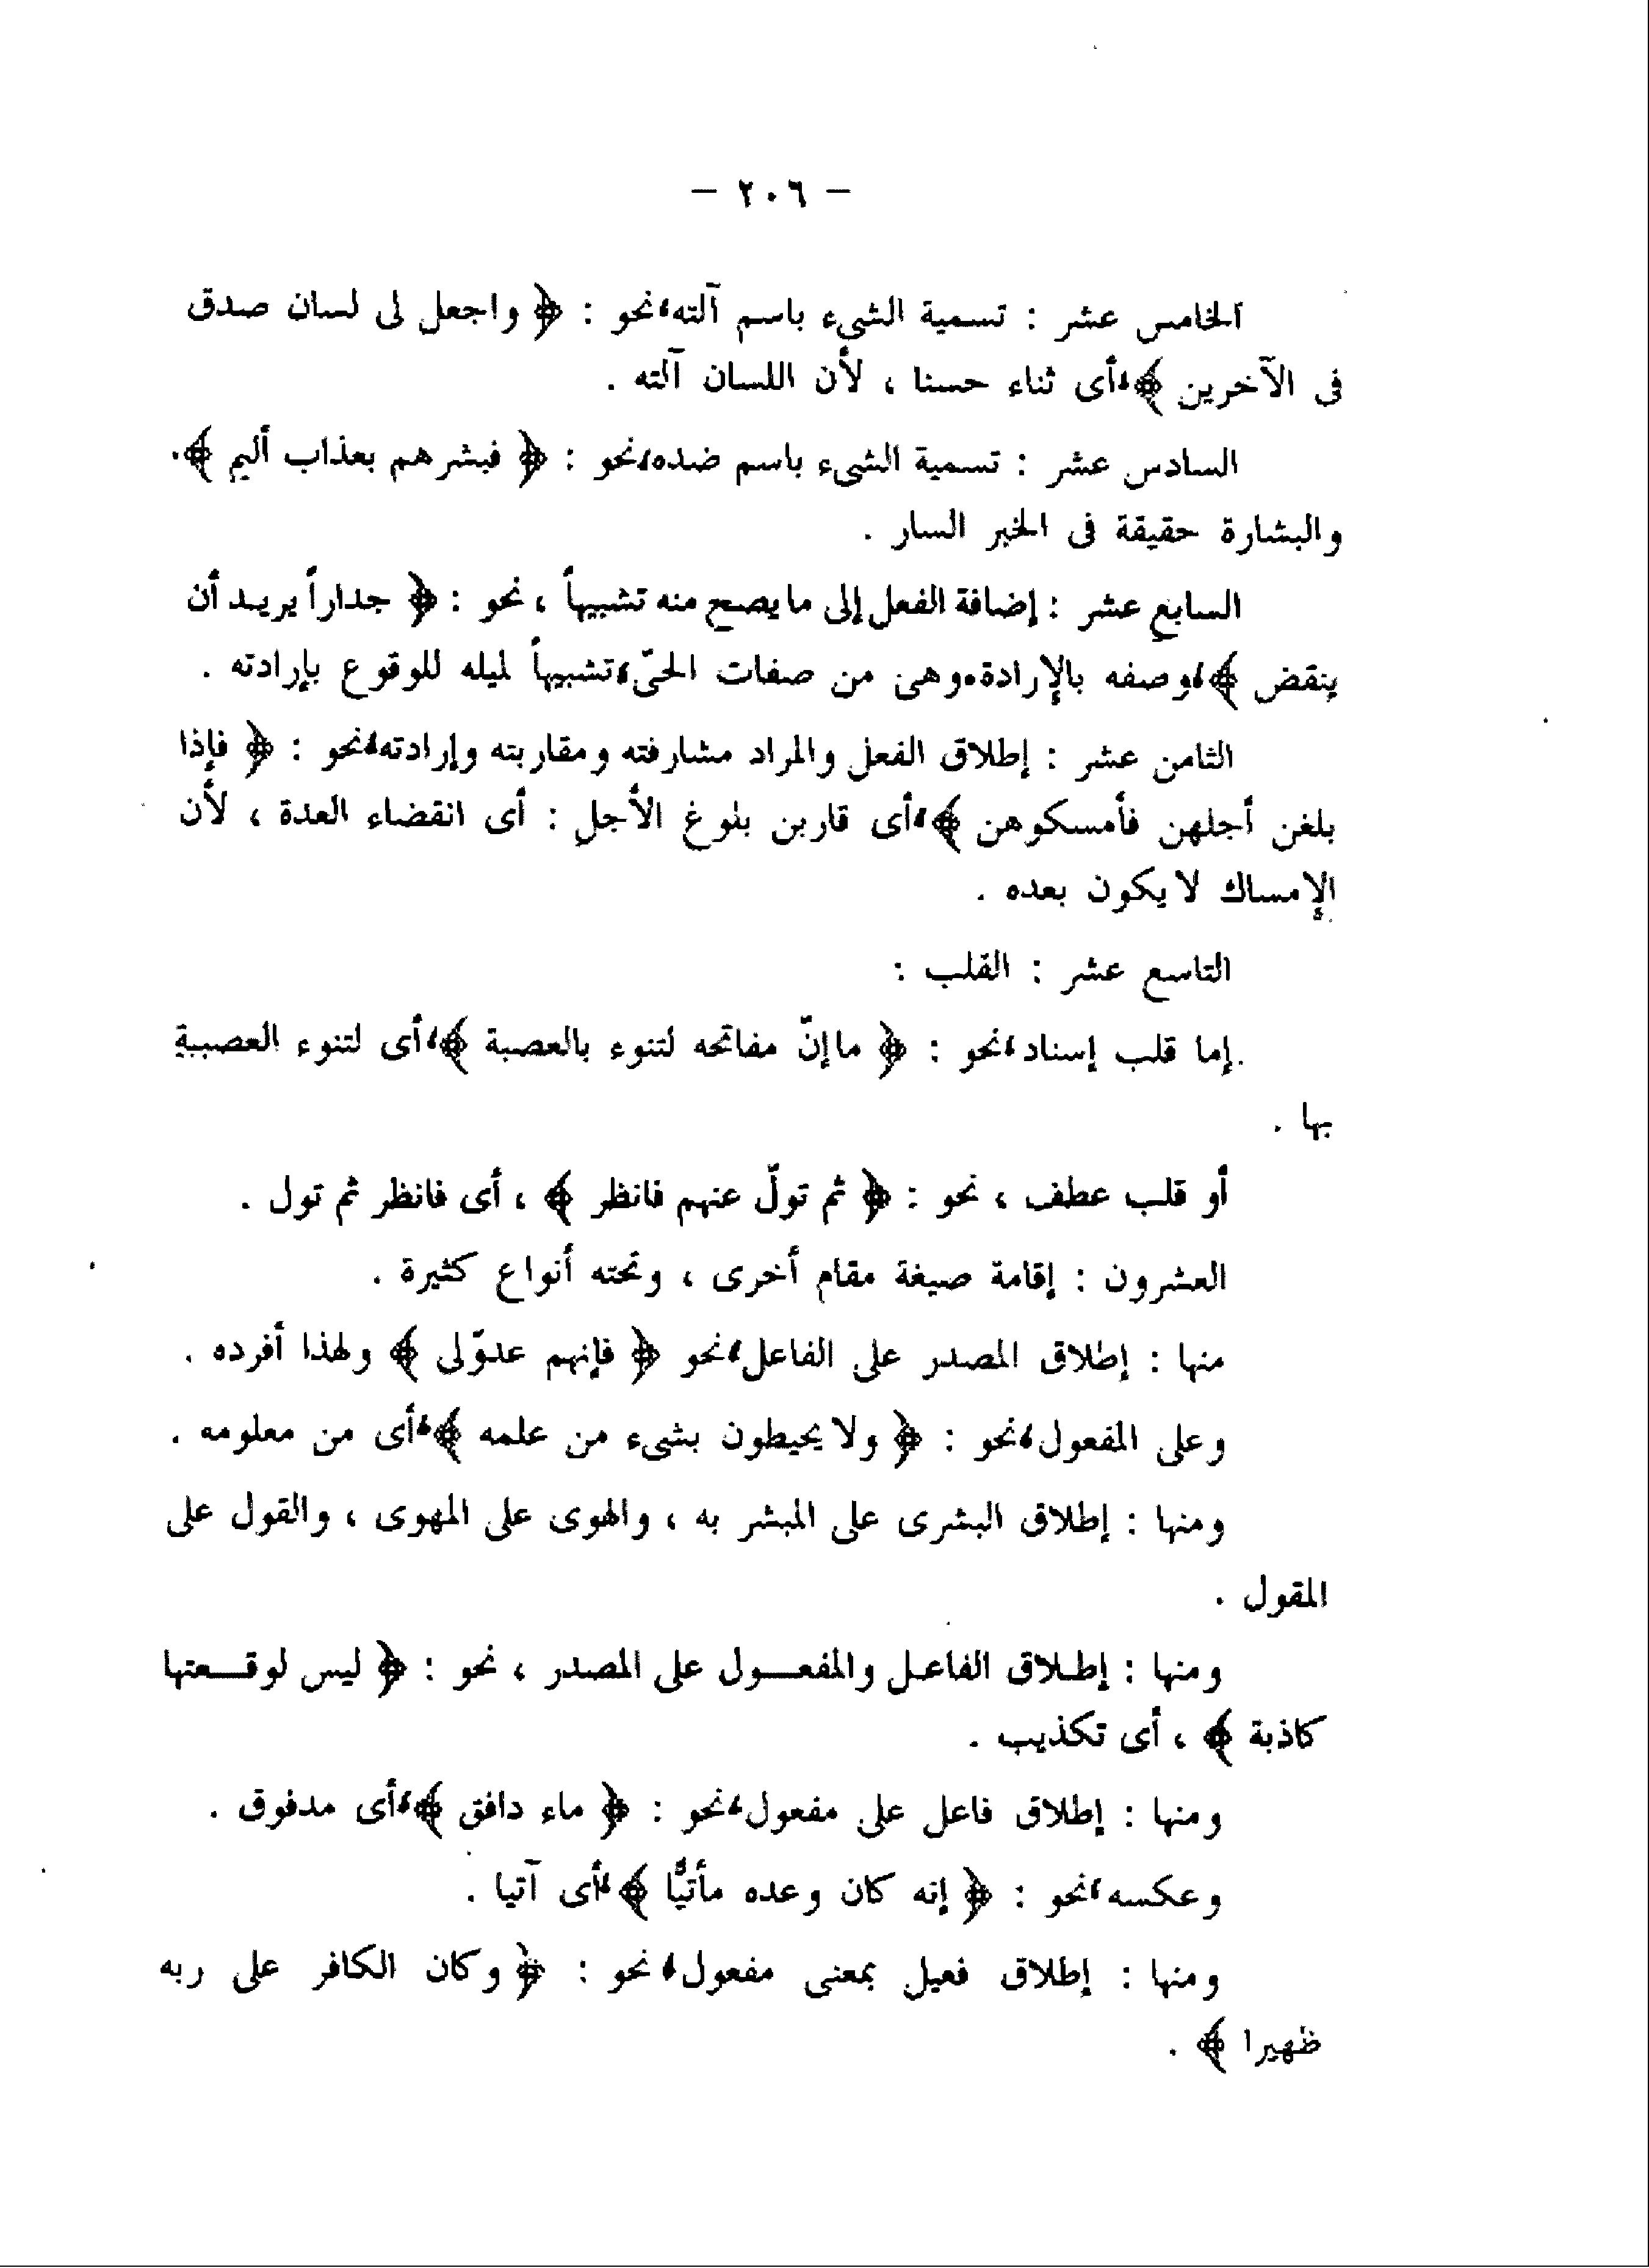 – ٢٠٦ –
الخامس عشر : تسمية الشىء باسم آلته، نحو : ﴿ واجعل لى لسان صدق
فى الآخرين ﴾، أى ثناء حسنا ، لأن اللسان آلته .
السادس عشر : تسمية الشىء باسم ضده، نحو : ﴿ فبشرهم بعذاب أليم ﴾.
والبشارة حقيقة فى الخبر السار .
السابع عشر : إضافة الفعل إلى ما يصح منه تشبيهاً ، نحو : ﴿ جداراً يريد أن
ينقض ﴾، وصفه بالإرادة. وهى من صفات الحىّ، تشبيهاً لميله للوقوع بإرادته .
الثامن عشر : إطلاق الفعل والمراد مشارفته ومقاربته وإرادته، نحو : ﴿ فإذا
بلغن أجلهن فأمسكوهن ﴾، أى قاربن بلوغ الأجل : أى انقضاء العدة ، لأن
الإمساك لا يكون بعده .
التاسع عشر : القلب :
إما قلب إسناد، نحو : ﴿ ما إنّ مفاتحه لتنوء بالعصبة ﴾، أى لتنوء العصبة
بها .
أو قلب عطف ، نحو : ﴿ ثم تولّ عنهم فانظر ﴾ ، أى فانظر ثم تول .
العشرون : إقامة صيغة مقام أخرى ، وتحته أنواع كثيرة .
منها : إطلاق المصدر على الفاعل، نحو ﴿ فإنهم عدوّ لى ﴾ ولهذا أفرده .
وعلى المفعول، نحو : ﴿ ولا يحيطون بشىء من علمه ﴾، أى من معلومه .
ومنها : إطلاق البشرى على المبشر به ، والهوى على المهوى ، والقول على
المقول .
ومنها : إطلاق الفاعل والمفعول على المصدر ، نحو : ﴿ ليس لوقعتها
كاذبة ﴾ ، أى تكذيب .
ومنها : إطلاق فاعل على مفعول، نحو : ﴿ ماء دافق ﴾، أى مدفوق .
وعكسه، نحو : ﴿ إنه كان وعده مأتيًّا ﴾، أى آتيا .
ومنها : إطلاق فعيل بمعنى مفعول، نحو : ﴿ وكان الكافر على ربه
ظهيرا ﴾ .